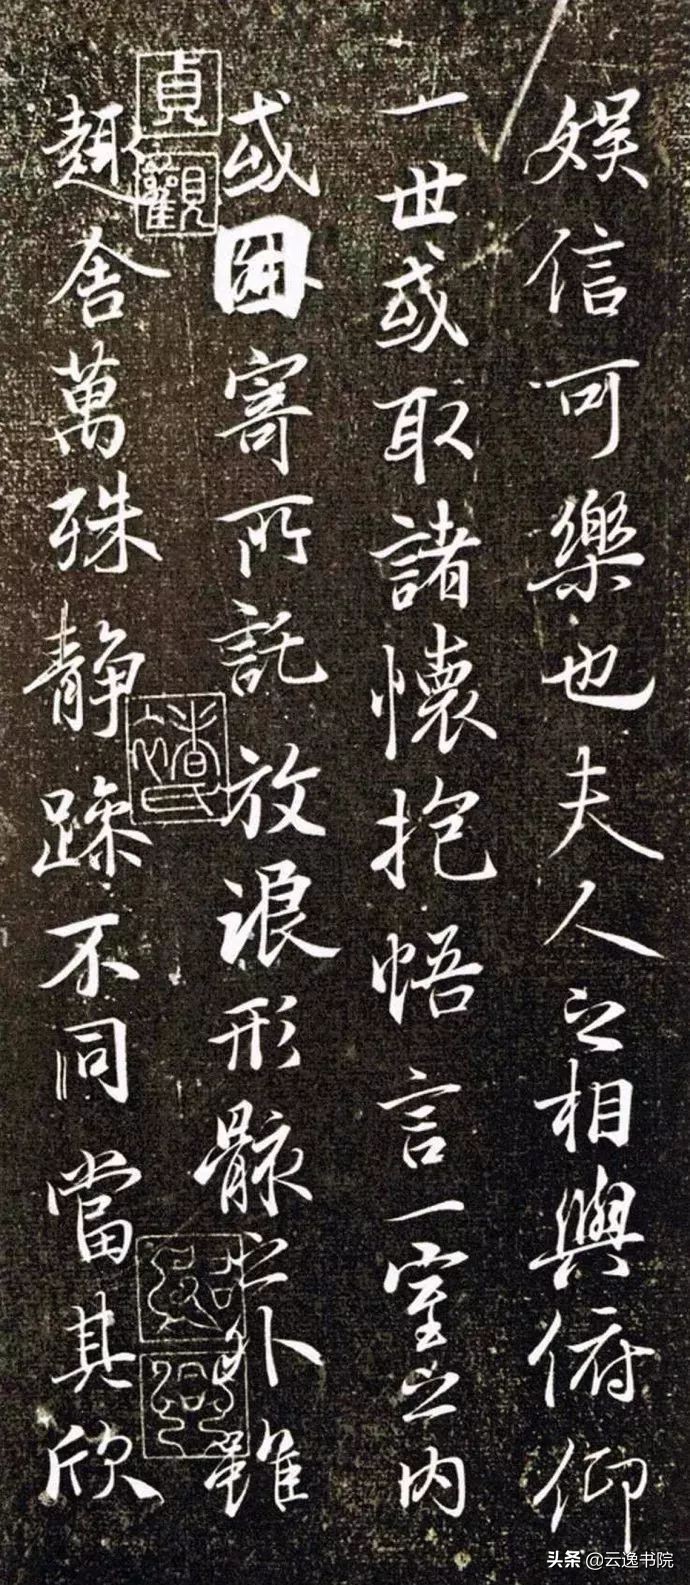 娛信可樂也夫人之相與俯仰
一世或取諸懷抱悟言一室之内
或因寄所託放浪形骸之外雖
趣舍萬殊静躁不同當其欣
貞觀
头条 @云逸书院